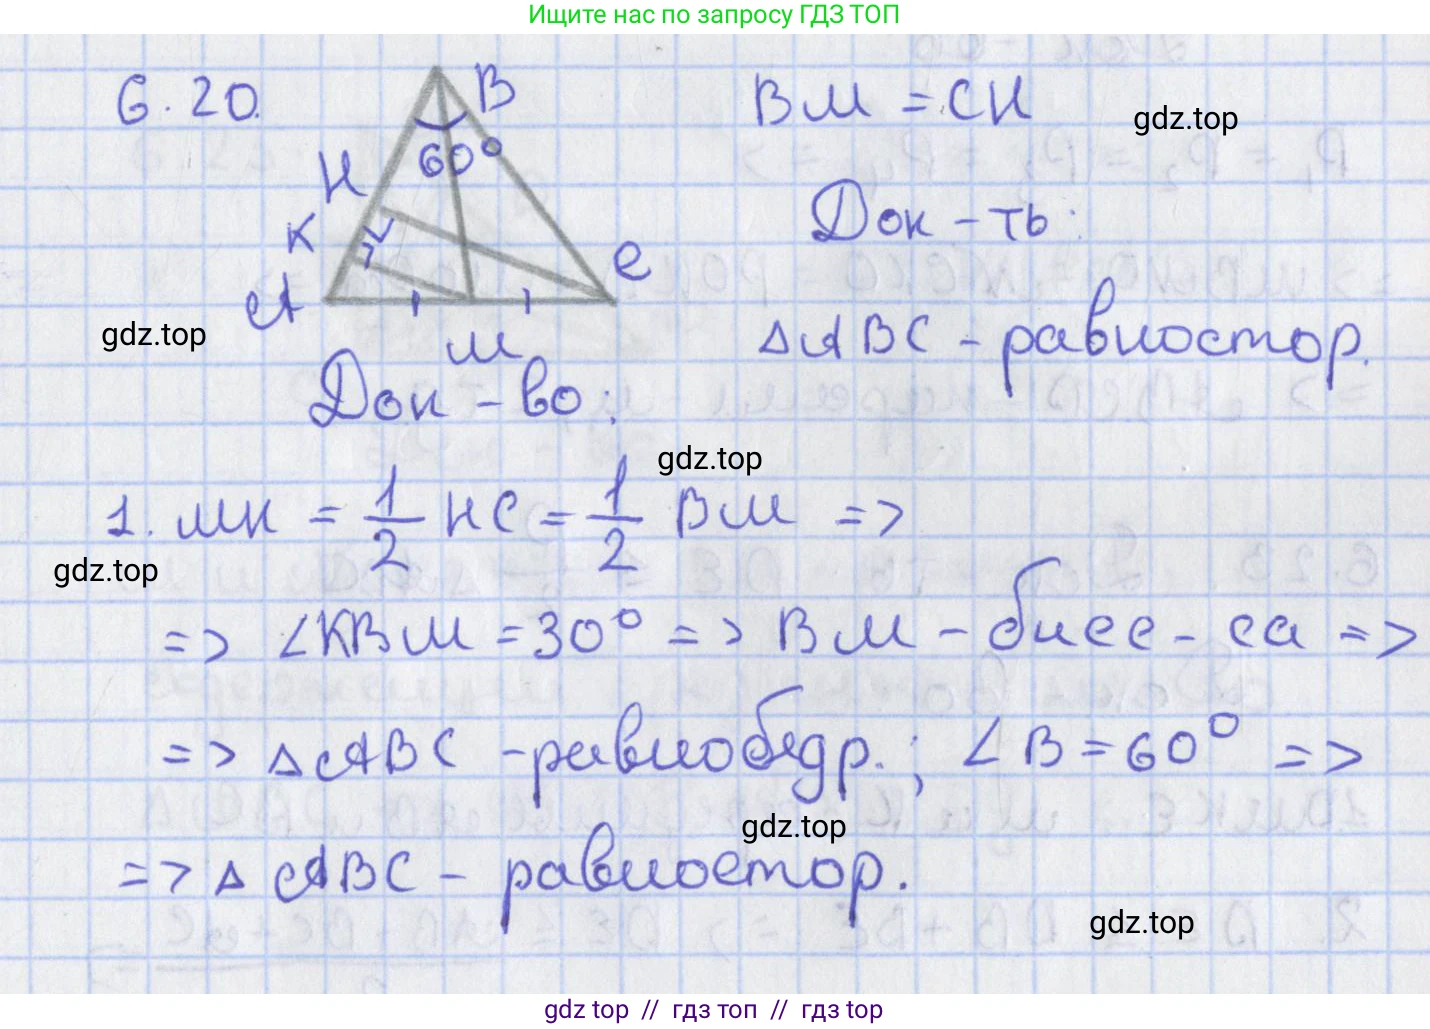 Ищите нас по запросу ГДЗ ТОП
6.20.
B
60°
H
K
A
C
M
BM = CH
gdz.top
Док-ть:
gdz.top
△ABC - равностор.
Док-во:
gdz.top
1. MK = 1/2 HC = 1/2 BM =>
gdz.top
=> ∠KBM = 30° => BM - бисс-са =>
=> △ABC - равнобедр.; ∠B = 60° =>
gdz.top
=> △ABC - равностор.
gdz.top
gdz top // гдз топ // gdz top